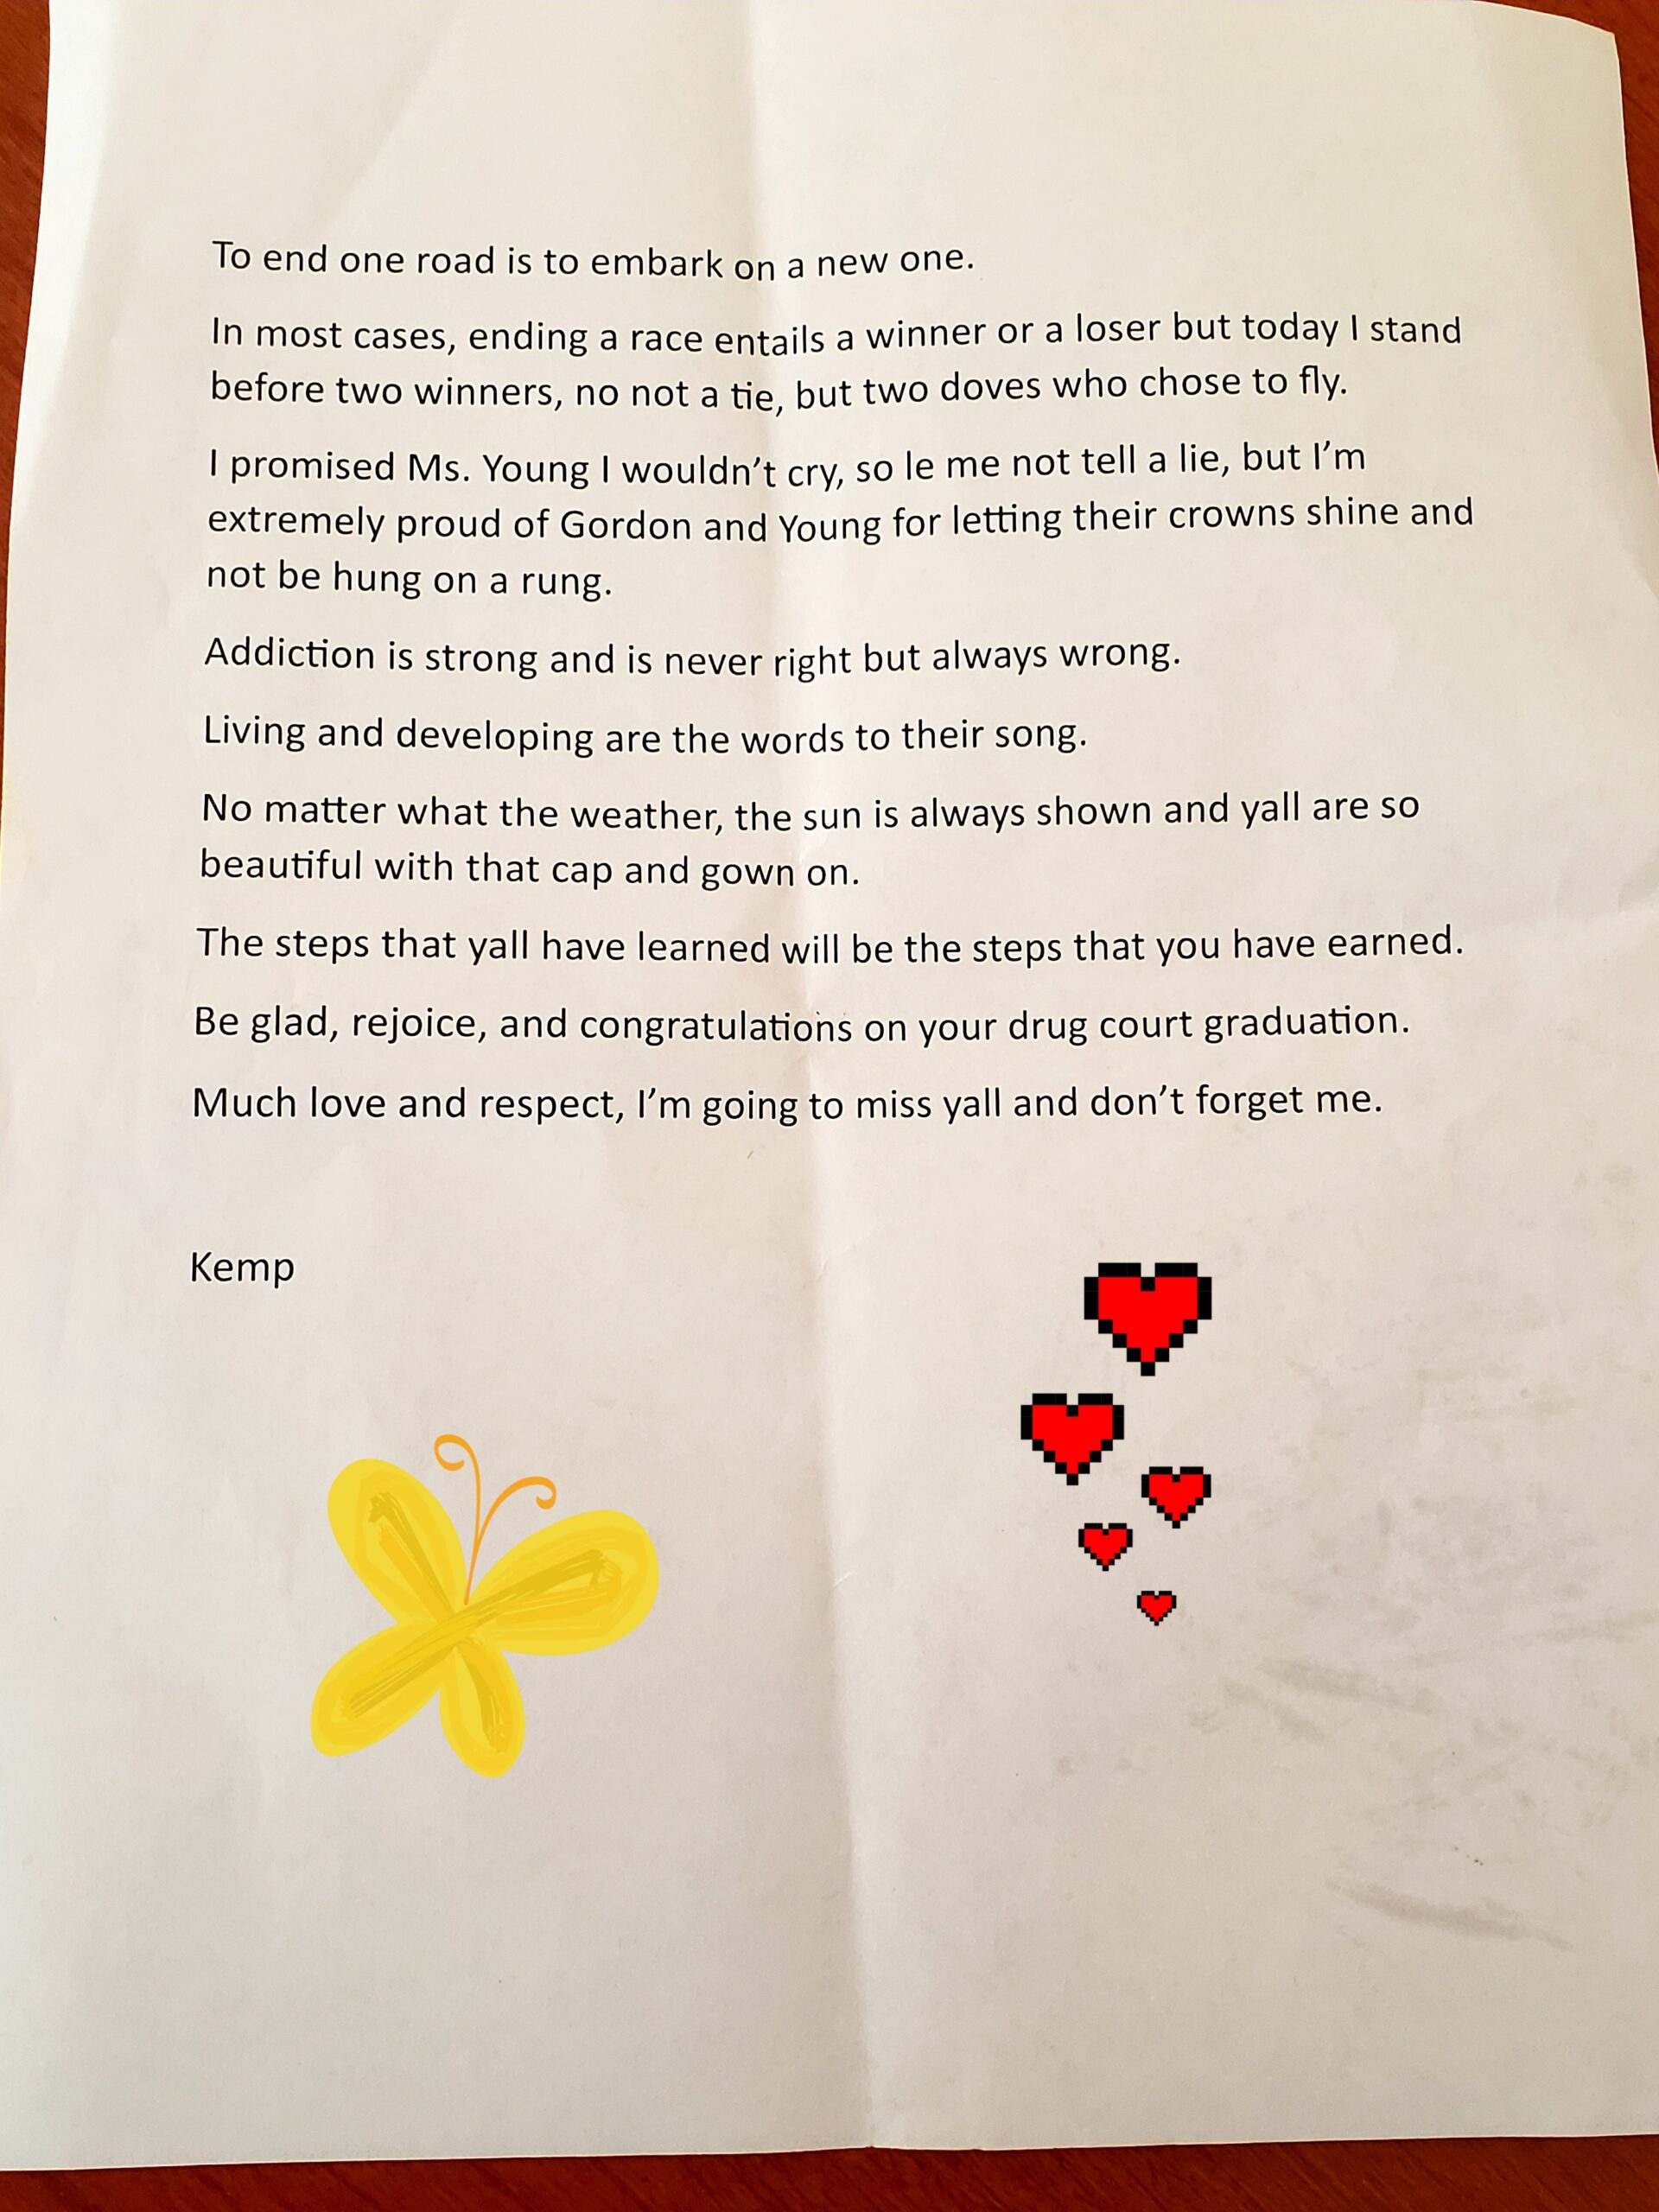 To end one road is to embark on a new one.
In most cases, ending a race entails a winner or a loser but today I stand
before two winners, no not a tie, but two doves who chose to fly.
I promised Ms. Young I wouldn’t cry, so le me not tell a lie, but I’m
extremely proud of Gordon and Young for letting their crowns shine and
not be hung on a rung.
Addiction is strong and is never right but always wrong.
Living and developing are the words to their song.
No matter what the weather, the sun is always shown and yall are so
beautiful with that cap and gown on.
The steps that yall have learned will be the steps that you have earned.
Be glad, rejoice, and congratulations on your drug court graduation.
Much love and respect, I’m going to miss yall and don’t forget me.
Kemp